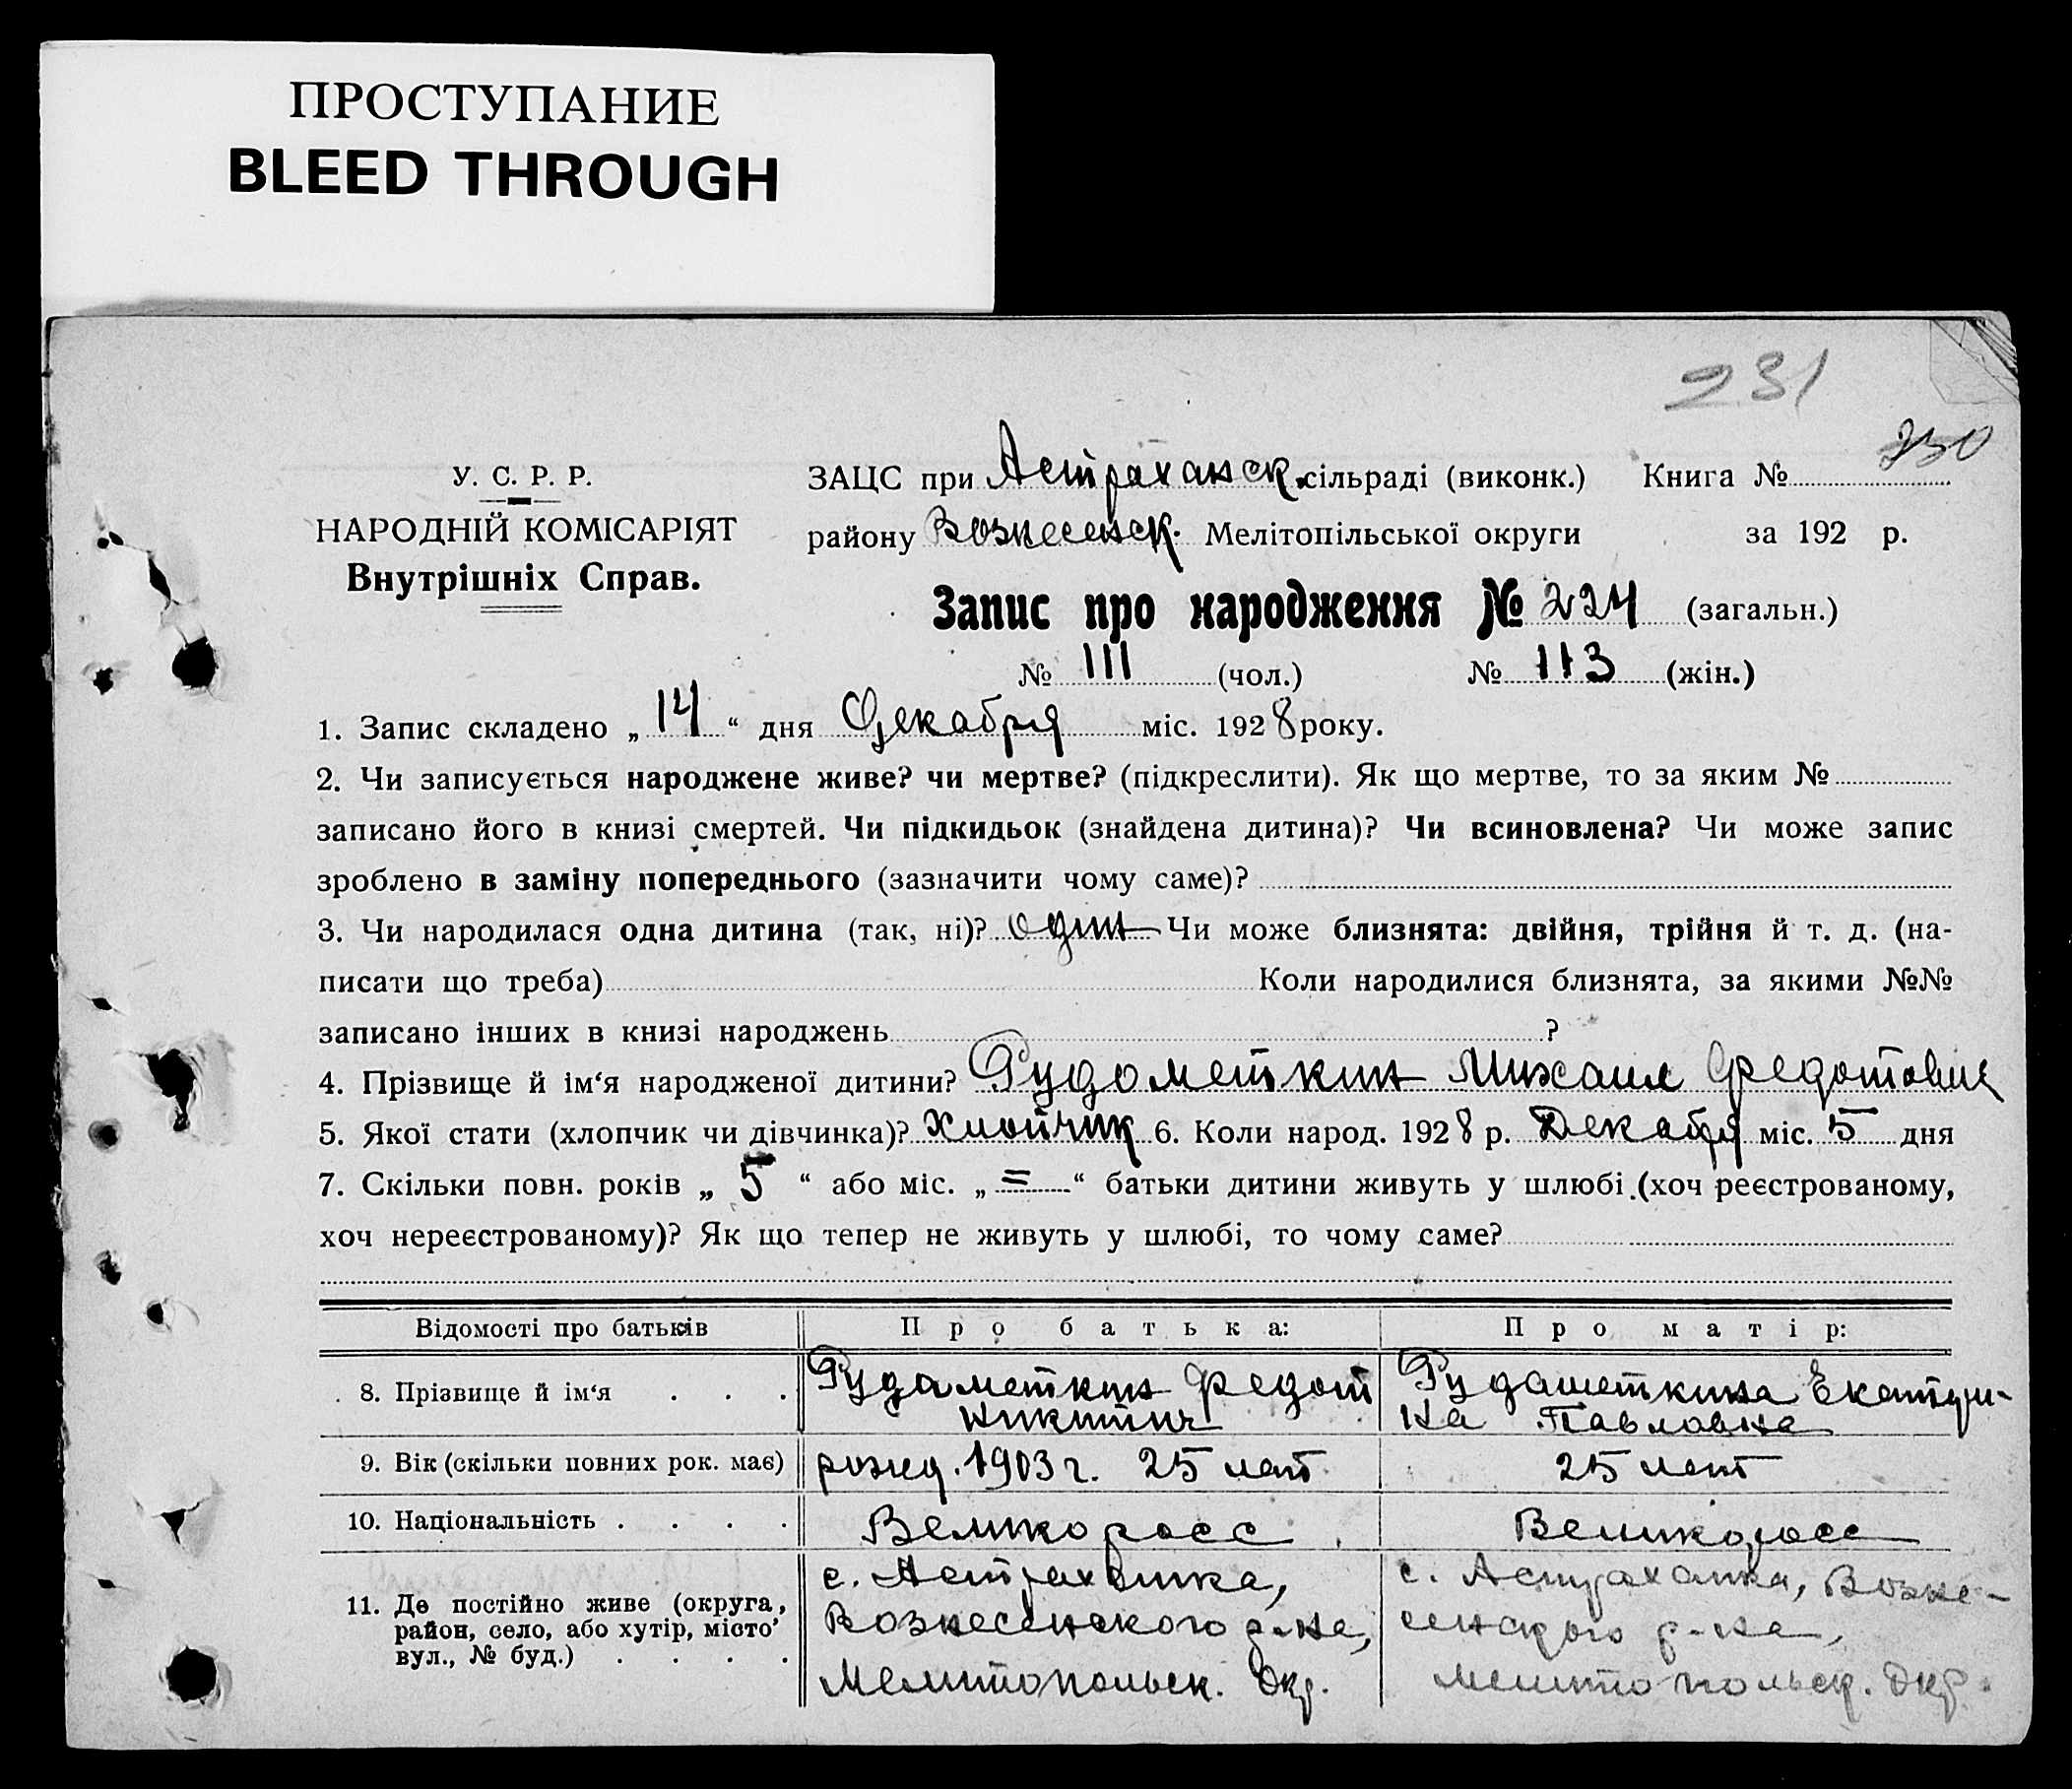 ПРОСТУПАНИЕ
BLEED THROUGH
231
У. С. Р. Р.
НАРОДНІЙ КОМІСАРІЯТ
Внутрішніх Справ.
ЗАЦС при Астраханск. сільраді (виконк.) Книга № 230
району Вознесенск. Мелітопільської округи за 192 р.
Запис про народження № 224 (загальн.)
№ 111 (чол.) № 113 (жін.)
1. Запис складено „ 14 “ дня Декабря міс. 1928 року.
2. Чи записується народжене живе? чи мертве? (підкреслити). Як що мертве, то за яким №
записано його в книзі смертей. Чи підкидьок (знайдена дитина)? Чи всиновлена? Чи може запис
зроблено в заміну попереднього (зазначити чому саме)?
3. Чи народилася одна дитина (так, ні)? один Чи може близнята: двійня, трійня й т. д. (на-
писати що треба) Коли народилися близнята, за якими №№
записано інших в книзі народжень ?
4. Прізвище й ім‘я народженої дитини? Рудометкин Михаил Федотович
5. Якої стати (хлопчик чи дівчинка)? Хлопчик 6. Коли народ. 1928 р. Декабря міс. 5 дня
7. Скільки повн. років „ 5 “ або міс. „ = “ батьки дитини живуть у шлюбі (хоч реєстрованому,
хоч нереєстрованому)? Як що тепер не живуть у шлюбі, то чому саме?
Відомості про батьків Про батька: Про матір:
8. Прізвище й ім‘я . . . Рудаметкин Федот Рудаметкина Екатери-
Никитич на Павловна
9. Вік (скільки повних рок. має) рожд. 1903 г. 25 лет 25 лет
10. Національність . . . . Великоросс Великоросс
11. Де постійно живе (округа, с. Астраханка, с. Астраханка, Возне-
район, село, або хутір, місто’ Вознесенского р-на, сенского р-на,
вул., № буд.) . . . . Мелитопольск. Окр. Мелитопольск. Окр.